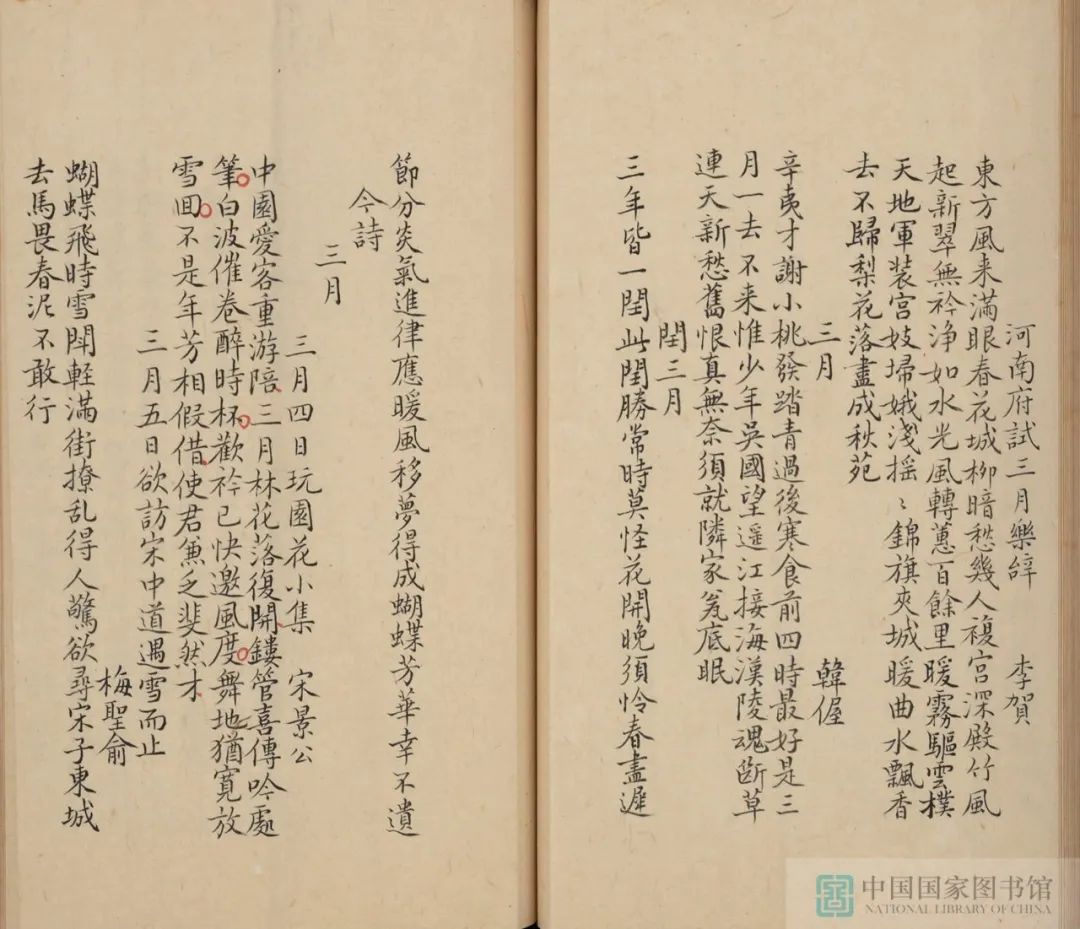 河南府試三月樂辝　李賀
東方風来滿眼春花城柳暗愁幾人複宮深殿竹風
起新翠無衿浄如水光風轉蕙百餘里暖霧驅雲撲
天地軍装宮妓埽娥淺摇〻錦旗夾城暖曲水飄香
去不歸梨花落盡成秋苑
三月　韓偓
辛夷才謝小桃發踏青過後寒食前四時最好是三
月一去不来惟少年吳國望遥江接海漢陵魂断草
連天新愁舊恨真無奈須就隣家瓮底眠
閏三月
三年皆一閏此閏勝常時莫怪花開晚須怜春盡遲
節分炎氣進律應暖風移夢得成蝴蝶芳華幸不遺
今詩
三月
三月四日玩園花小集　宋景公
中園愛客重游陪三月林花落復開鏤管喜傳吟處
筆白波催卷醉時杯歡衿已快邀風度舞地猶寛放
雪回不是年芳相假借使君兼乏斐然才
三月五日欲訪宋中道遇雪而止
梅聖俞
蝴蝶飛時雪閗輊滿街撩乱得人驚欲尋宋子東城
去馬畏春泥不敢行
中国国家图书馆
NATIONAL LIBRARY OF CHINA